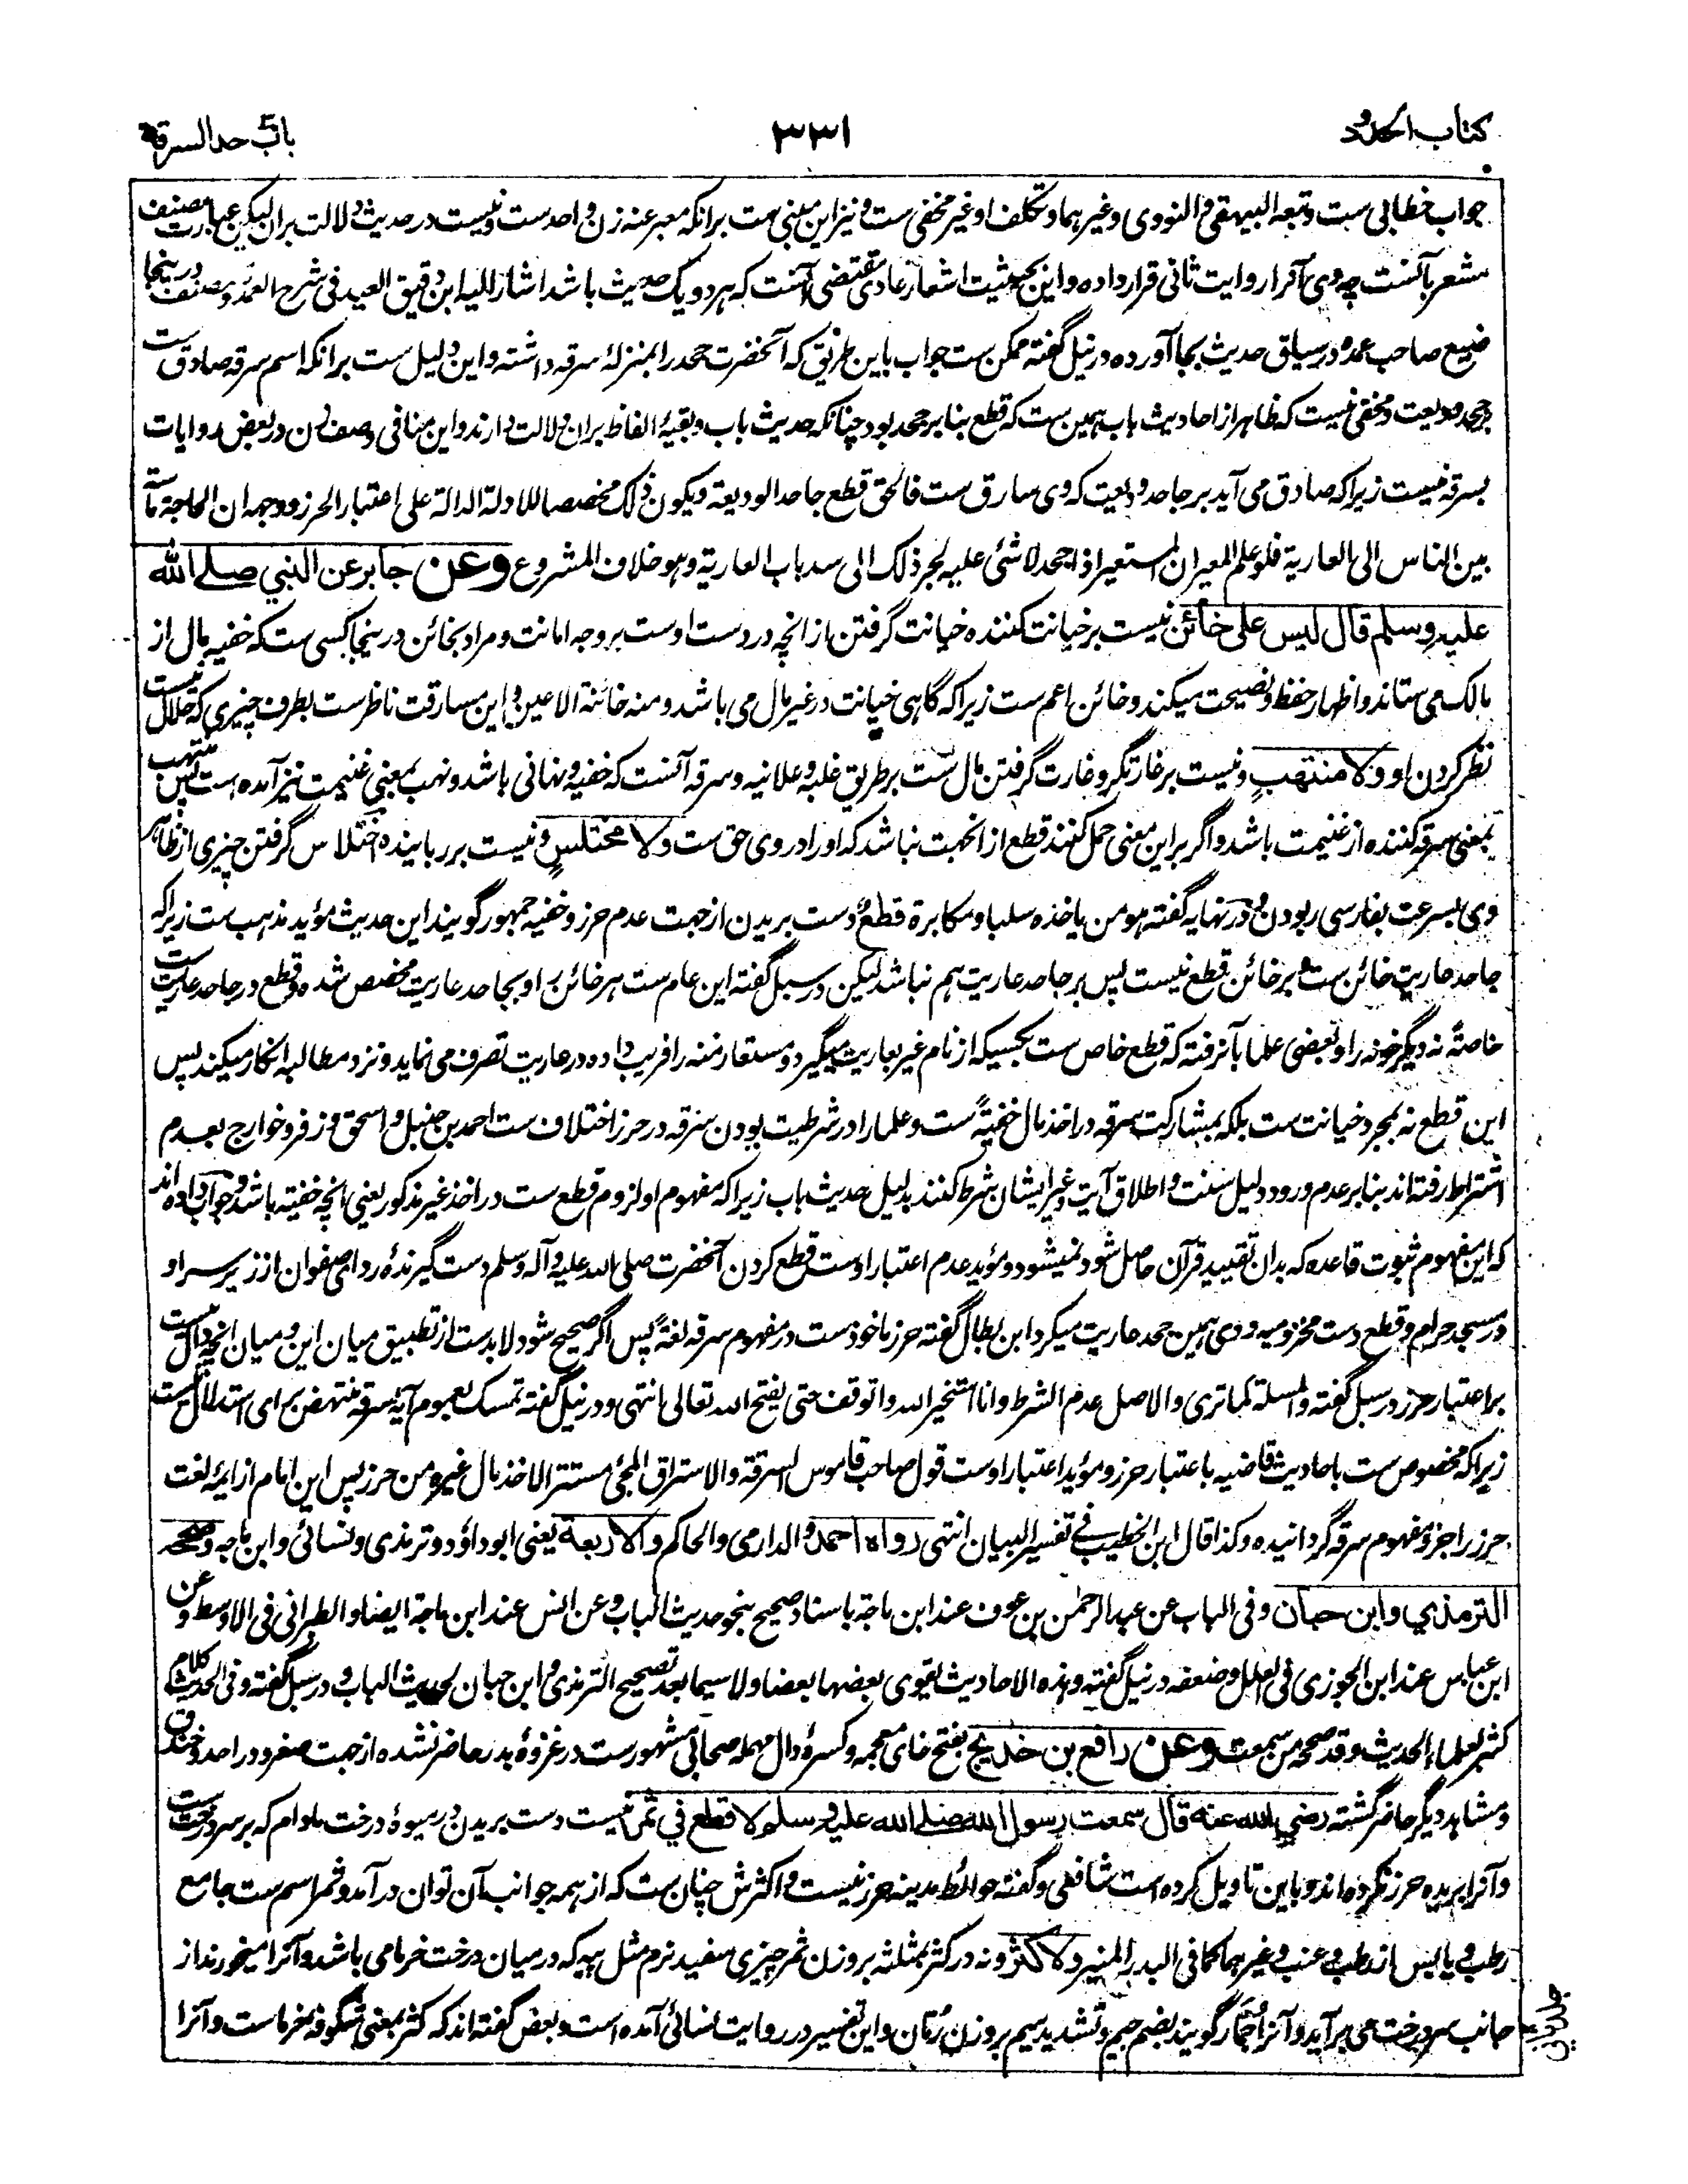 کتاب الحدود
۳۳۱
باب حد السرقة
جواب خطابی ست و تبعه البیهقی و النووی و غیرهما و تکلف او غیر مخفی ست و نیز این مبنی ست برانکه معبر عنه زن واحد ست و نیست در حدیث دلالت بران لیکن عبارت مصنف
مشعر بآنست چه وی آنرا روایت ثانی قرار داده و این بحیثیت اشعار عادی مقتضی آنست که هر دو یک حدیث باشد اشار الیه ابن دقیق العید فی شرح العمدة و مصنف درینجا
صنیع صاحب عمده در سیاق حدیث بجا آورده در نیل گفته ممکن ست جواب باین طریق که آنحضرت جحد را بمنزلۀ سرقه داشته و این دلیل ست برانکه اسم سرقه صادق ست
بر جحد ودیعت و مخفی نیست که ظاهر از احادیث باب همین ست که قطع بنابر جحد بود چنانکه حدیث باب و بقیۀ الفاظ بران دلالت دارند و این منافی وصف زن در بعض روایات
بسرقه نیست زیراکه صادق می آید بر جاحد ودیعت که وی سارق ست فالحق قطع جاحد الودیعة و یکون ذلک مخصصا للادلة الدالة علی اعتبار الحرز و وجهه ان الحاجة ماسة
بین الناس الی العاریة فلو علم المعیر ان المستعیر اذا جحد لا شئ علیه لجر ذلک الی سد باب العاریة و هو خلاف المشروع وعن جابر عن النبي صلے الله
علیه وسلم قال لیس علی خائن نیست بر خیانت کننده خیانت گرفتن از انچه در دست اوست بر وجه امانت و مراد بخائن درینجا کسی ست که خفیه مال از
مالک می ستاند و اظهار حفظ و نصیحت میکند و خائن اعم ست زیراکه گاهی خیانت در غیر مال می باشد و منه خائنة الاعین و این مسارقت ناظر ست بطرف چیزی که حلال نیست
نظر کردن او ولا منتهب و نیست بر غارتگر و غارت گرفتن مال ست بر طریق غلبه و علانیه و سرقه آنست که خفیه و نهانی باشد و نهب بمعنی غنیمت نیز آمده است پس منتهب
بمعنی سرقه کننده از غنیمت باشد و اگر بر این معنی حمل کنند قطع از انجهت نباشد که او را در وی حق ست ولا مختلس و نیست بر رباینده اختلاس گرفتن چیزی از ظاهر
وی بسرعت بفارسی ربودن و در نهایه گفته هو من یاخذه سلبا و مکابرة قطع دست بریدن از جهت عدم حرز و خفیه جمهور گویند این حدیث مؤید مذهب ست زیراکه
جاحد عاریت خائن ست و بر خائن قطع نیست پس بر جاحد عاریت هم نباشد لیکن در سبل گفته این عام ست هر خائن را و بجاحد عاریت مخصص شده و قطع در جاحد عاریت ست
خاصةً نه دیگر خونه را و بعضی علما بآن رفته که قطع خاص ست بکسیکه از نام غیر بعاریت میگیرد و مستعار منه را فریب داده در عاریت تصرف می نماید و نزد مطالبه انکار میکند پس
این قطع نه بمجرد خیانت ست بلکه بمشارکت سرقه در اخذ مال خفیةً ست و علما را در شرطیت بودن سرقه در حرز اختلاف ست احمد بن حنبل و اسحق و زفر و خوارج بعدم
اشتراط رفته اند بنابر عدم ورود دلیل سنت و اطلاق آیت و غیر ایشان شرط کنند بدلیل حدیث باب زیراکه مفهوم او لزوم قطع ست در اخذ غیر مذکور یعنی انچه خفیته باشد و جواب داده اند
که این مفهوم ثبوت قاعده که بدان تقیید قرآن حاصل شود نمیشود و مؤید عدم اعتبار اوست قطع کردن آنحضرت صلی الله علیه و آله وسلم دست گیرندۀ ردای صفوان از زیر سر او
در مسجد حرام و قطع دست مخزومیه و وی همین جحد عاریت میکرد ابن بطال گفته حرز ماخوذ ست در مفهوم سرقه لغةً پس اگر صحیح شود لا بد ست از تطبیق میان این و میان انچه دال نیست
بر اعتبار حرز در سبل گفته و المسئلة کما تری و الاصل عدم الشرط و انا استخیر الله و اتوقف حتی یفتح الله تعالی انتهی و در نیل گفته تمسک بعموم آیۀ سرقه منتهض برای استدلال نیست
زیراکه مخصوص ست باحادیث قاضیه باعتبار حرز و مؤید اعتبار اوست قول صاحب قاموس السرقة و الاستراق المجئ مستترا لاخذ مال غیره من حرز پس این امام از ایمۀ لغت
حرز را جزو مفهوم سرقه گردانیده و کذا قال ابن الخطیب فی تفسیر البیان انتهی رواه احمد و الدارمی و الحاکم والاربعة یعنی ابو داؤد و ترمذی و نسائی و ابن ماجه وصححه
الترمذي وابن حبان و فی الباب عن عبد الرحمن بن عوف عند ابن ماجة باسناد صحیح بنحو حدیث الباب و عن انس عند ابن ماجة ایضا و الطبرانی فی الاوسط و عن
ابن عباس عند ابن الجوزی فی العلل و ضعفه در نیل گفته و هذه الاحادیث یقوی بعضها بعضا و لا سیما بعد تصحیح الترمذی و ابن حبان لحدیث الباب و در سبل گفته و فی الحدیث کلام
کثیر لعلماء الحدیث و قد صححه من سمعت وعن رافع بن خدیج بفتح خای معجمه و کسرۂ دال مهمله صحابی مشهور ست در غزوۂ بدر حاضر نشده از جهت صغر و در احد و خندق
و مشاهد دیگر حاضر گشته رضي الله عنه قال سمعت رسول الله صلے الله علیه وسلم لا قطع في ثمر نیست دست بریدن در میوۂ درخت مادام که بر سر درخت ست
و آنرا بریده حرز نکرده اند و باین تاویل کرده است شافعی و گفته حوائط مدینه حرز نیست و اکثرش چنان ست که از همه جوانب آن توان درآمد و ثمر اسم ست جامع
رطب و یابس از رطب و عنب و غیرهما کما فی البدر المنیر ولا کثر و نه در کثر بمثلثه بر وزن ثمر چیزی سفید نرم مثل پیه که در میان درخت خرما می باشد و آنرا میخورند از
جانب سر درخت می برآید و آنرا جُمّار گویند بضم جیم و تشدید میم بر وزن رُمّان و این تفسیر در روایت نسائی آمده است و بعض گفته اند که کثر بمعنی شگوفۂ خرماست و آنرا